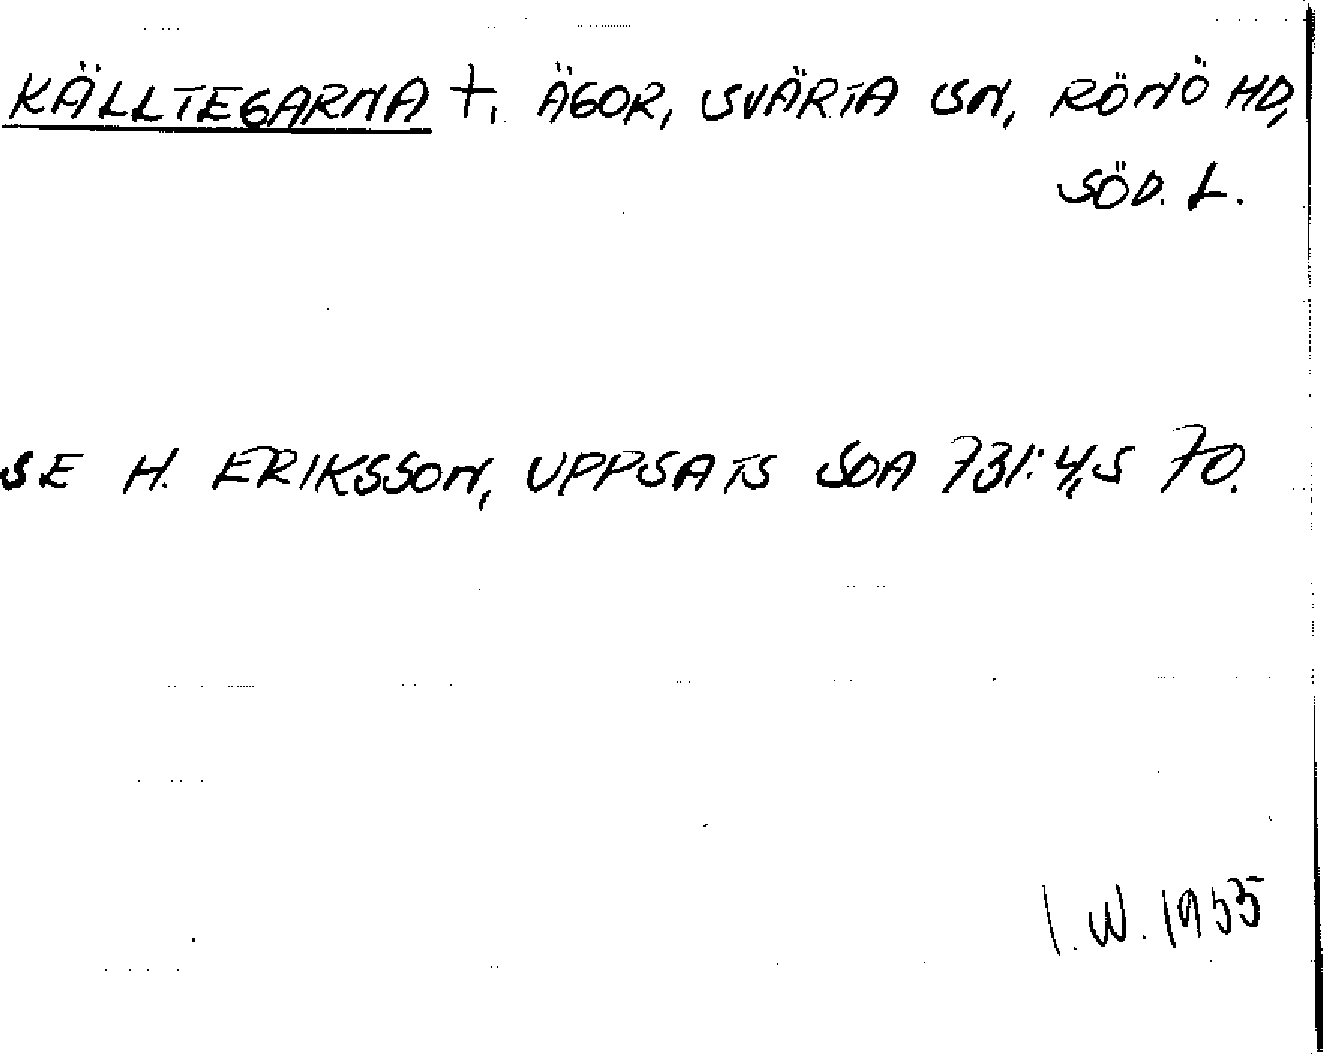 KÄLLTEGARNA +, ÄGOR, SVÄRTA SN, RÖNÖ HD,
SÖD. L.
SE H. ERIKSSON, UPPSATS SOA 731:4, S 70.
I.W. 1955